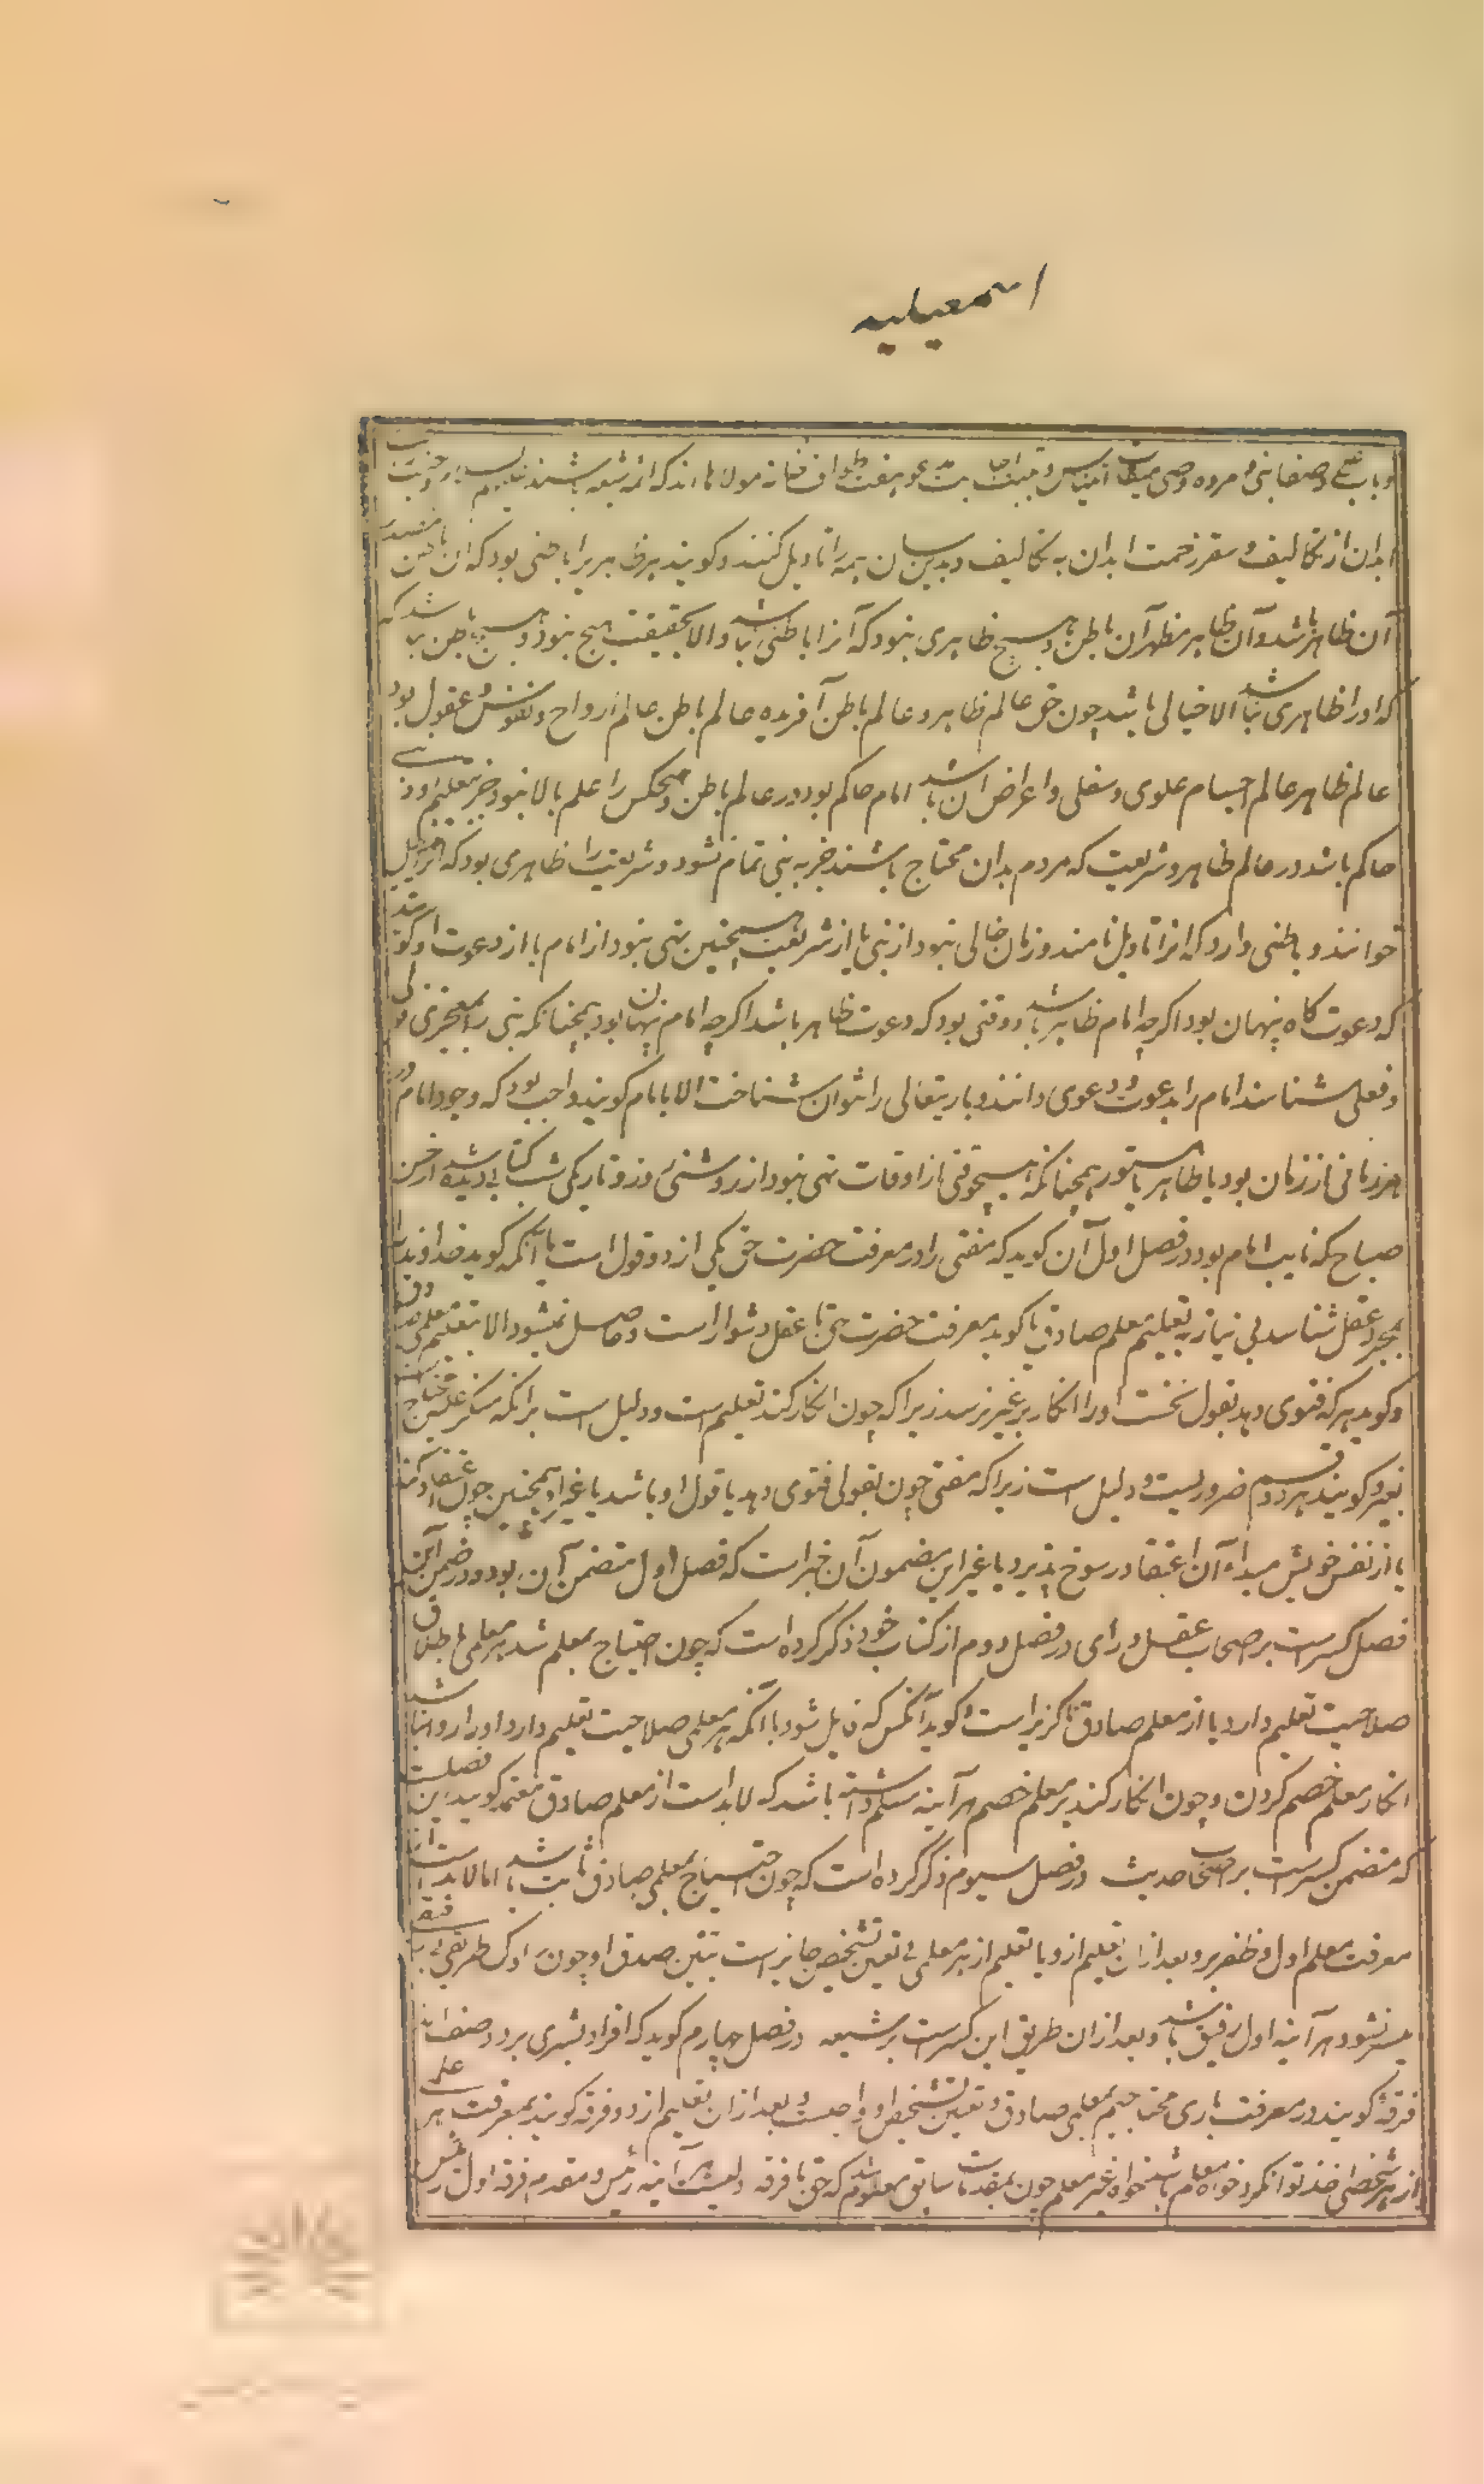 اسمعیلیه
و باب علی و صفا نبی و مروه وصی میقات ایناس و تلبیه اجابت مدعو و هفت طواف خانه مولانا اند که ائمه سبعه باشند
ابدان از تکالیف و سقر زحمت ابدان به تکالیف و بدینسان همه را تاویل کنند و گویند هر ظاهر را باطنی بود که آن باطن مصدر
آن ظاهر باشد و آن ظاهر مظهر آن باطن و هیچ ظاهری نبود که آنرا باطنی نباشد و الا بحقیقت هیچ نبود و هیچ باطن نباشد که
که او را ظاهری نباشد الا خیالی باشد چون حق عالم ظاهر و عالم باطن آفریده عالم باطن عالم ارواح و نفوس و عقول بود
عالم ظاهر عالم اجسام علوی و سفلی و اعراض آن باشد امام حاکم بود در عالم باطن و هیچکس را علم بالا نبود جز بتعلیم او و نبی
حاکم باشد در عالم ظاهر و شریعت که مردم بدان محتاج باشند جز به نبی تمام نشود و شریعت را ظاهری بود که آنرا تنزیل
خوانند و باطنی دارد که آنرا تاویل نامند و زمان خالی نبود از نبی یا از شریعت همچنین تهی نبود از امام یا از دعوت او
که دعوت گاه پنهان بود اگرچه امام ظاهر باشد و وقتی بود که دعوت ظاهر باشد اگرچه امام پنهان بود همچنانکه نبی را بمعجزی قولی
و فعلی شناسند امام را بدعوت و دعوی دانند و باریتعالی را نتوان شناخت الا بامام گویند واجب بود که وجود امام در
هر زمانی از زمان بود یا ظاهر یا مستور همچنانکه هیچوقتی از اوقات تهی نبود از روشنی روز و تاریکی شب کتابی دیده شد از حسن
صباح که نایب امام بود در فصل اول آن گوید که مفتی را در معرفت حضرت حق یکی از دو قول است یا آنکه گوید خداوند را
بمجرد عقل شناسد بی نیاز به تعلیم معلم صادق یا گوید معرفت حضرت حق با عقل دشوار است و حاصل نمیشود الا بتعلیم معلمی صادق
و گوید هر که فتوی دهد بقول نخست او را انکار بر غیر نرسد زیرا که چون انکار کند تعلیم است و دلیل است بر آنکه منکر علیه محتاج است
بغیر و گویند هر دو قسم ضروریست و دلیل است زیرا که مفتی چون بقولی فتوی دهد یا قول او باشد یا غیر او همچنین چون اعتقاد کند
یا از نفس خویش میداء آن اعتقاد رسوخ پذیرد یا غیر این مضمون آن خبر است که فصل اول متضمن آن بود و در ضمن این
فصل کسر است بر اصحاب عقل و رای در فصل دوم از کتاب خود ذکر کرده است که چون احتیاج بمعلم شد هر معلمی باطلاق
صلاحیت تعلیم دارد یا از معلم صادق ناگزیر است و گوید آنکس که قایل شود با آنکه هر معلمی صلاحیت تعلیم دارد او را روا نباشد
انکار معلم خصم کردن و چون انکار کند بر معلم خصم هر آینه مسلم داشته باشد که لابد است از معلم صادق معتمد گویند این فصلیست
که متضمن کسر است بر اصحاب حدیث در فصل سیوم ذکر کرده است که چون احتیاج بمعلمی صادق ثابت شد اما لابد است از
معرفت معلم اول و ظفر برو بعد از آن تعلیم ازو یا تعلیم از هر معلمی بی تعین تشخیص جایز است تبیین صدق او چون سلوک طریق بی رفیق
میسر نشود هر آینه اول رفیق باشد و بعد از آن طریق این کسر است بر شیعه در فصل چهارم گوید که افراد بشری بر دو صنف اند
فرقه گویند در معرفت باری محتاجیم بمعلمی صادق و تعیین تشخیص او واجبست و بعد از آن تعلیم ازو و فرقه گویند بمعرفت هر علم
از هر شخصی اخذ توان کرد خواه معلم باشد خواه غیر معلم چون بمقدمات سابق معلوم شد که حق با فرقه اولیست هر آینه رئیس و مقدم فرقه اول رئیس